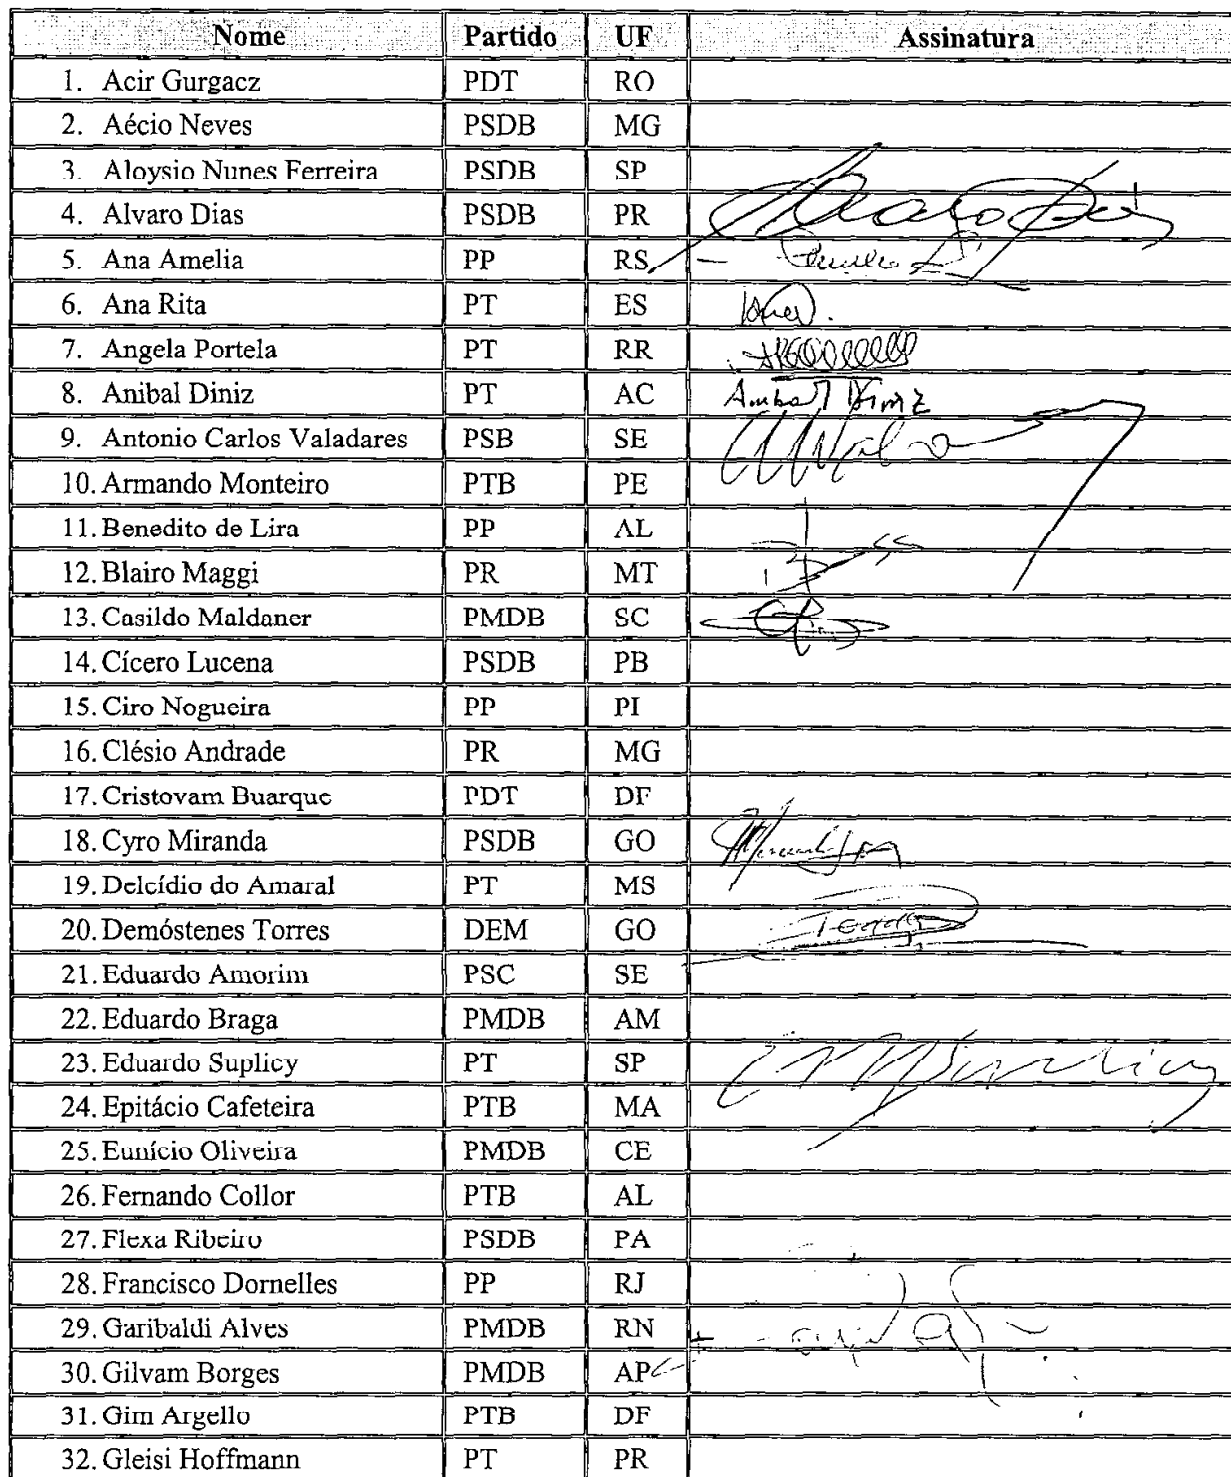 Nome Partido UF Assinatura
1. Acir Gurgacz PDT RO
2. Aécio Neves PSDB MG
3. Aloysio Nunes Ferreira PSDB SP
4. Alvaro Dias PSDB PR
5. Ana Amelia PP RS
6. Ana Rita PT ES
7. Angela Portela PT RR
8. Anibal Diniz PT AC Anibal Diniz
9. Antonio Carlos Valadares PSB SE
10. Armando Monteiro PTB PE
11. Benedito de Lira PP AL
12. Blairo Maggi PR MT
13. Casildo Maldaner PMDB SC
14. Cícero Lucena PSDB PB
15. Ciro Nogueira PP PI
16. Clésio Andrade PR MG
17. Cristovam Buarque PDT DF
18. Cyro Miranda PSDB GO
19. Delcídio do Amaral PT MS
20. Demóstenes Torres DEM GO
21. Eduardo Amorim PSC SE
22. Eduardo Braga PMDB AM
23. Eduardo Suplicy PT SP
24. Epitácio Cafeteira PTB MA
25. Eunício Oliveira PMDB CE
26. Fernando Collor PTB AL
27. Flexa Ribeiro PSDB PA
28. Francisco Dornelles PP RJ
29. Garibaldi Alves PMDB RN
30. Gilvam Borges PMDB AP
31. Gim Argello PTB DF
32. Gleisi Hoffmann PT PR